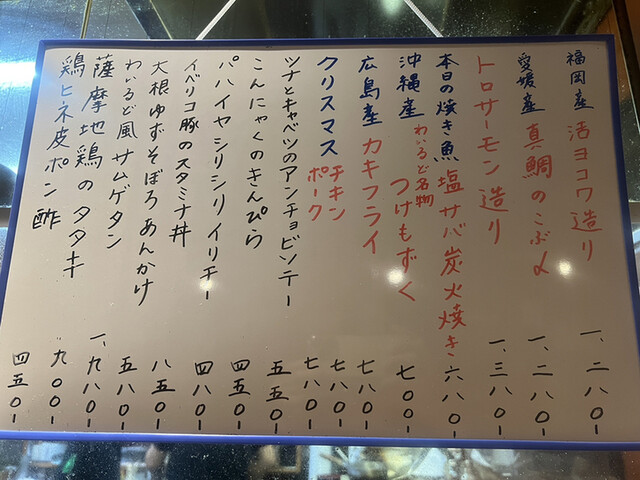 福岡産 活ヨコワ造り 一、二八〇-
愛媛産 真鯛のこぶ〆 一、二八〇-
トロサーモン造り 一、三八〇-
本日の焼き魚 塩サバ炭火焼き 六八〇-
沖縄産 わぃるど名物 つけもずく 七〇〇-
広島産 カキフライ 七八〇-
クリスマス チキン 七八〇-
ポーク 七八〇-
ツナとキャベツのアンチョビソテー 五五〇-
こんにゃくのきんぴら 四五〇-
パハイヤシリシリイリチー 四八〇-
イベリコ豚のスタミナ丼 八五〇-
大根ゆずそぼろあんかけ 五八〇-
わぃるど風サムゲタン 一、九八〇-
薩摩地鶏のタタキ 九〇〇-
鶏ヒネ皮ポン酢 四五〇-